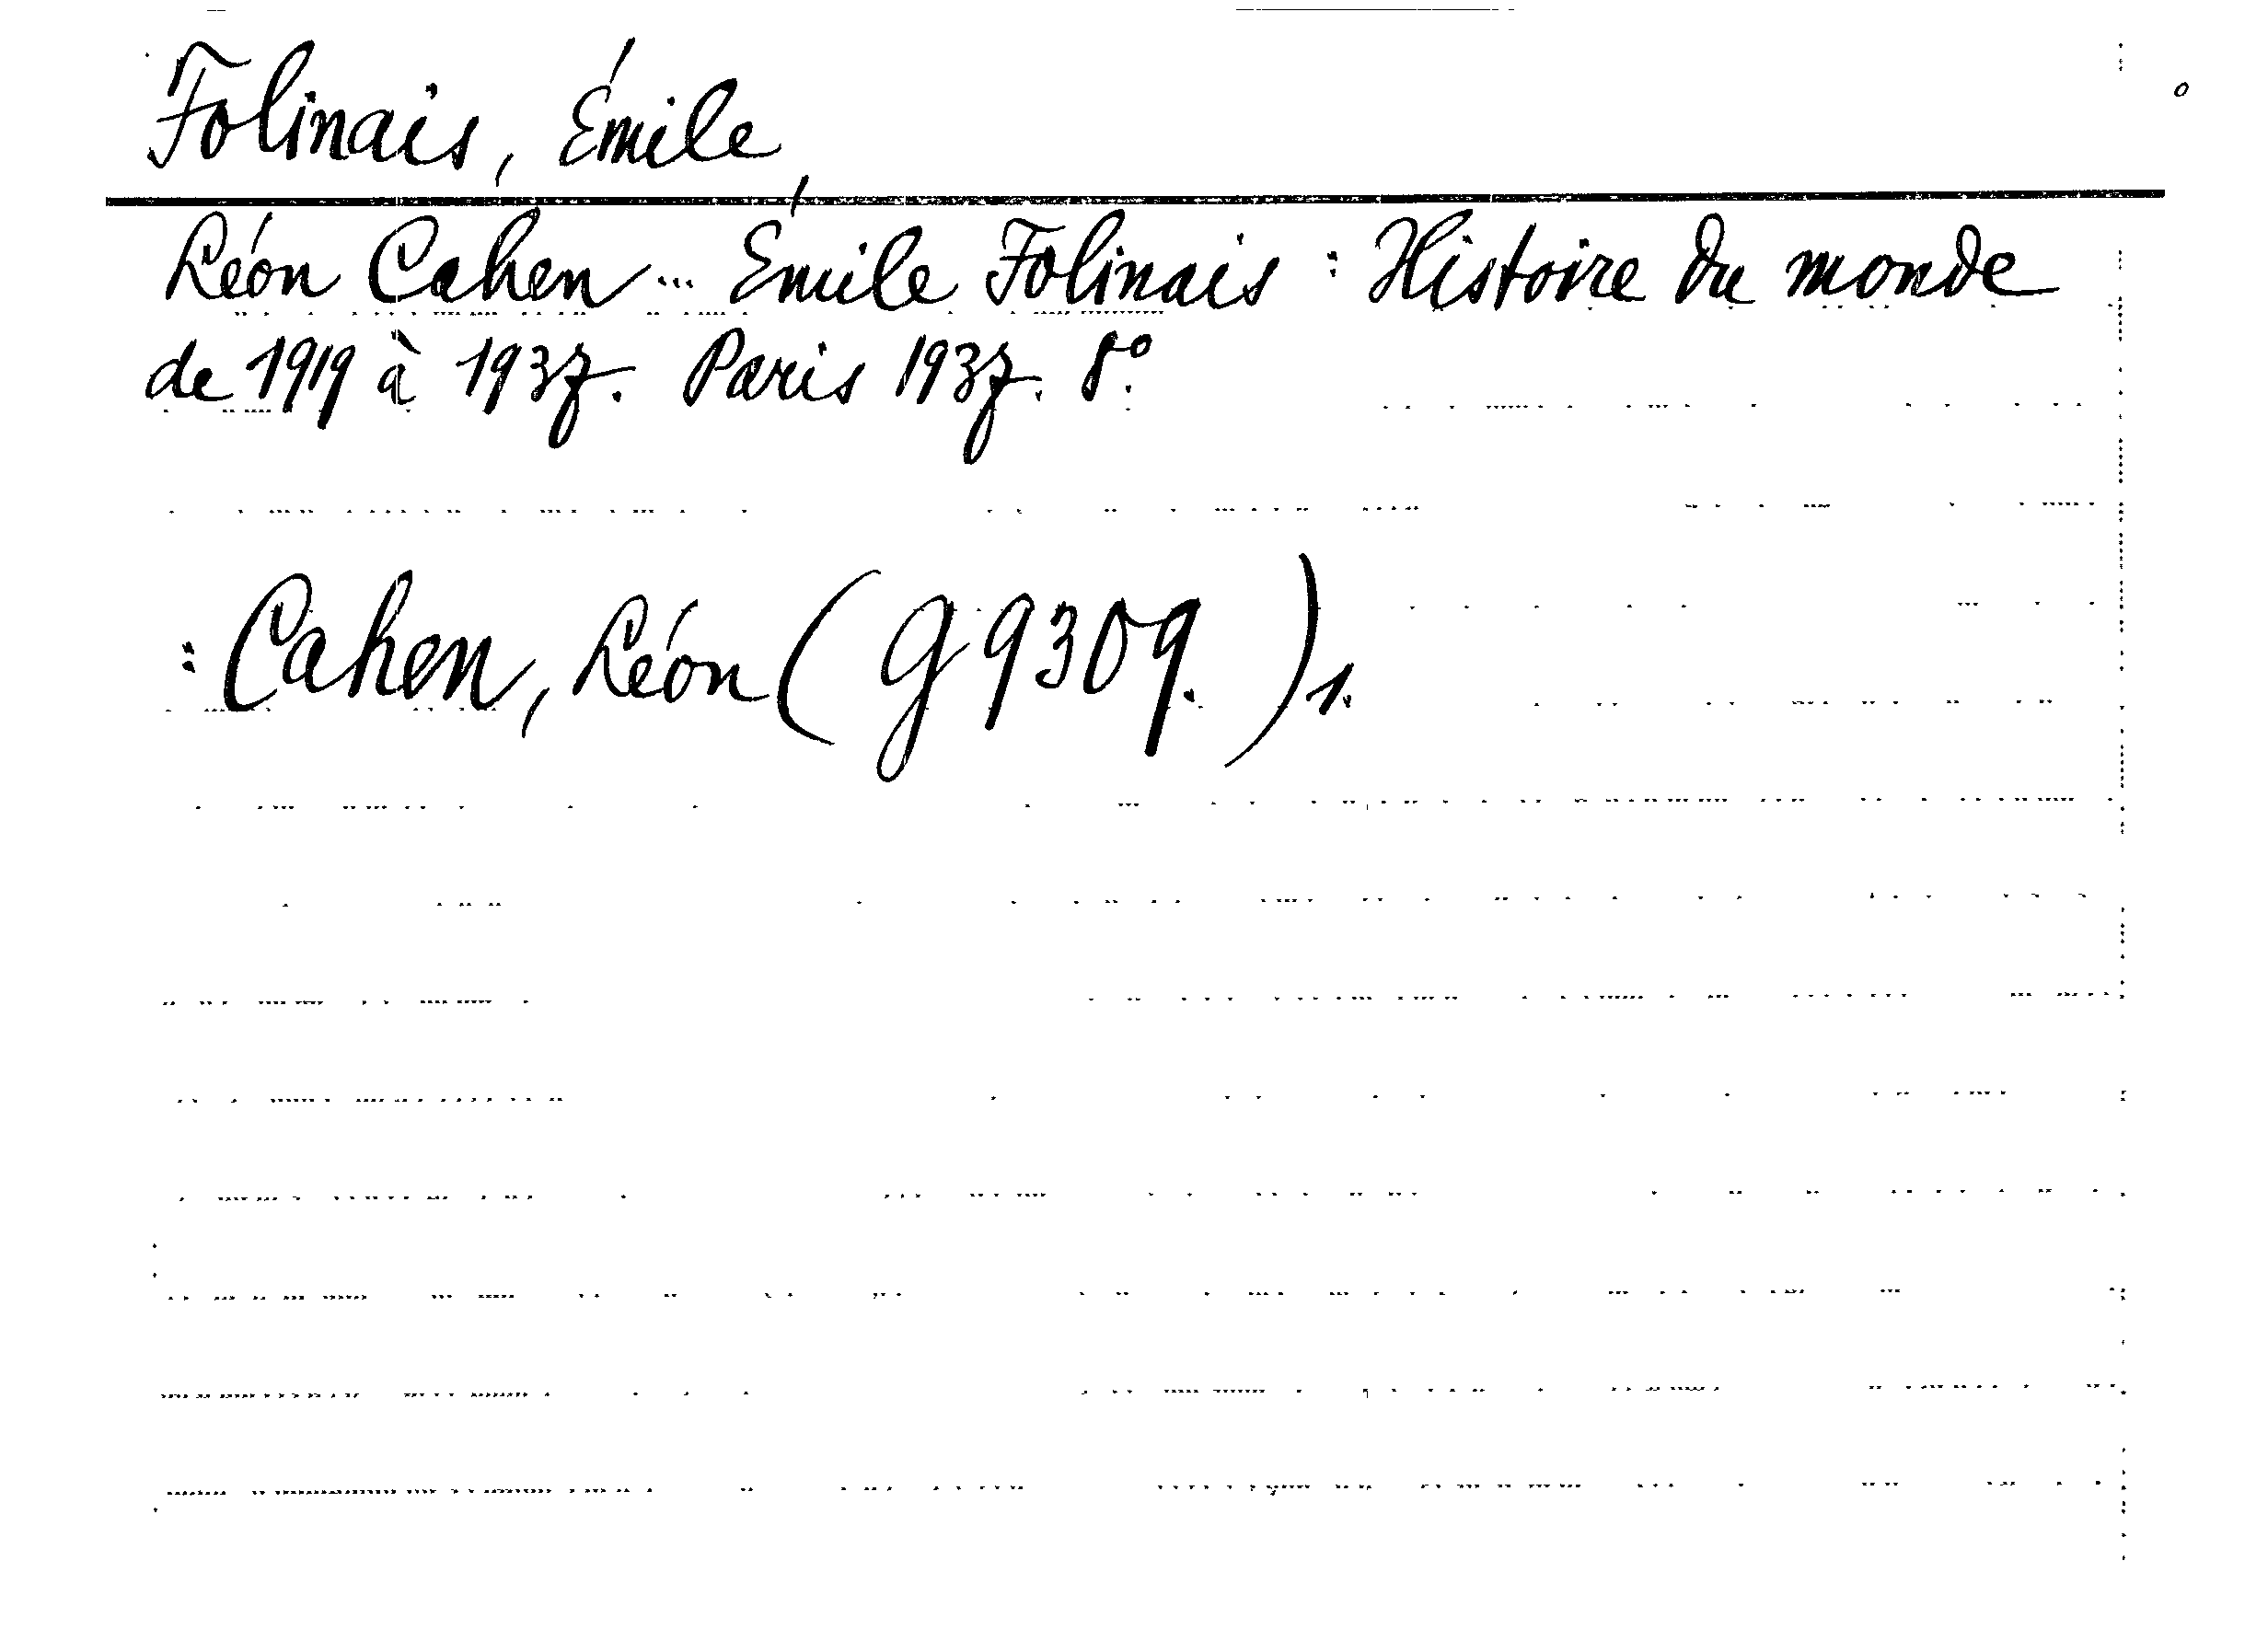 Folinais, Émile
Léon Cahen ... Émile Folinais : Histoire du monde
de 1919 à 1937. Paris 1937. 8°.
: Cahen, Léon (G 9309.) 1.